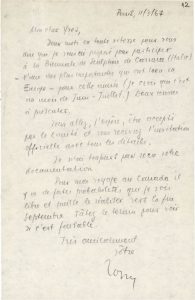 12
Paris, 11/3/67
Mon cher Yves,
Deux mots en toute vitesse pour vous
dire que je vous ai proposé pour participer
à la Biennale de Sculpture de Carrara (Italie)
des plus importantes qui ont lieu en
Europe - pour cette année (je crois que c'est
au mois de Juin - Juillet). Deux œuvres
à présenter.
Vous allez, j'espère, être accepté
par le comité et vous recevrez l'invitation
officielle avec tous les détails.
Je n'ai toujours pas reçu votre
documentation
Pour mon voyage au Canada il
y a de fortes probabilités que je sois
libre et puisse le réaliser vers la fin
septembre. Tâtez le terrain pour voir
si c'est faisable.
Très amicalement
vôtre